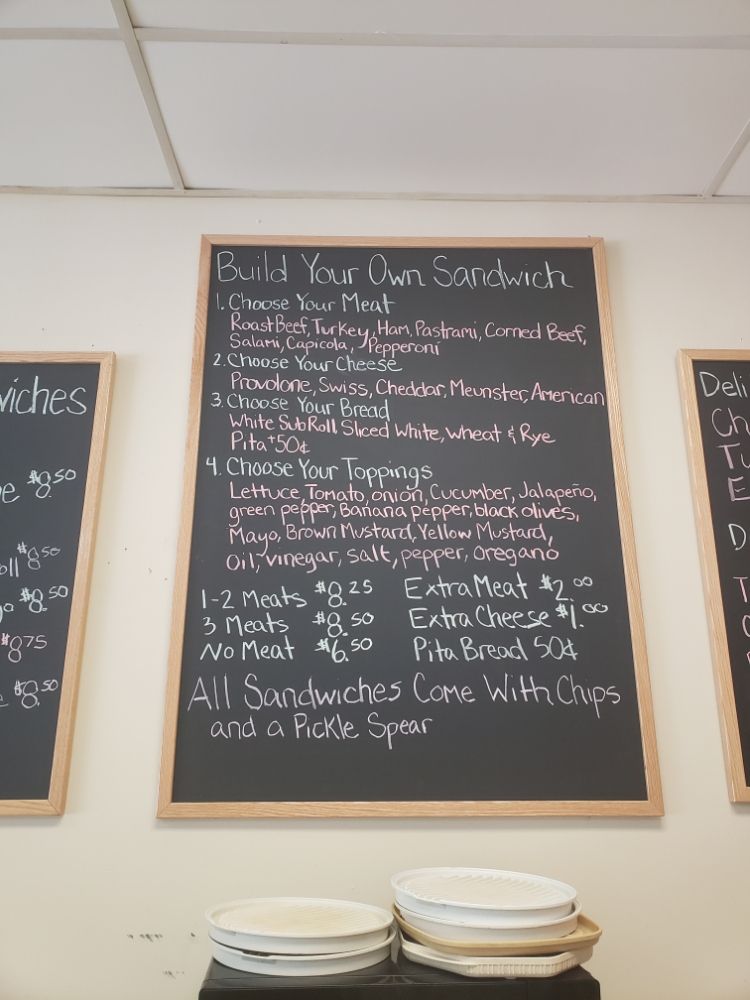 Build Your Own Sandwich
1. Choose Your Meat
Roast Beef, Turkey, Ham, Pastrami, Corned Beef,
Salami, Capicola, Pepperoni
2. Choose Your Cheese
Provolone, Swiss, Cheddar, Meunster, American
3. Choose Your Bread
White Sub Roll Sliced White, wheat & Rye
Pita +50¢
4. Choose Your Toppings
Lettuce, Tomato, onion, Cucumber, Jalapeño,
green pepper, Banana pepper, black olives,
Mayo, Brown Mustard, Yellow Mustard,
Oil, vinegar, salt, pepper, oregano
1-2 Meats $8.25 Extra Meat $2.00
3 Meats $8.50 Extra Cheese $1.00
No Meat $6.50 Pita Bread 50¢
All Sandwiches Come With Chips
and a Pickle Spear
wiches
$8.50
$8.50
$8.50
$8.75
$8.50
Deli
Ch
Tu
E
D
T